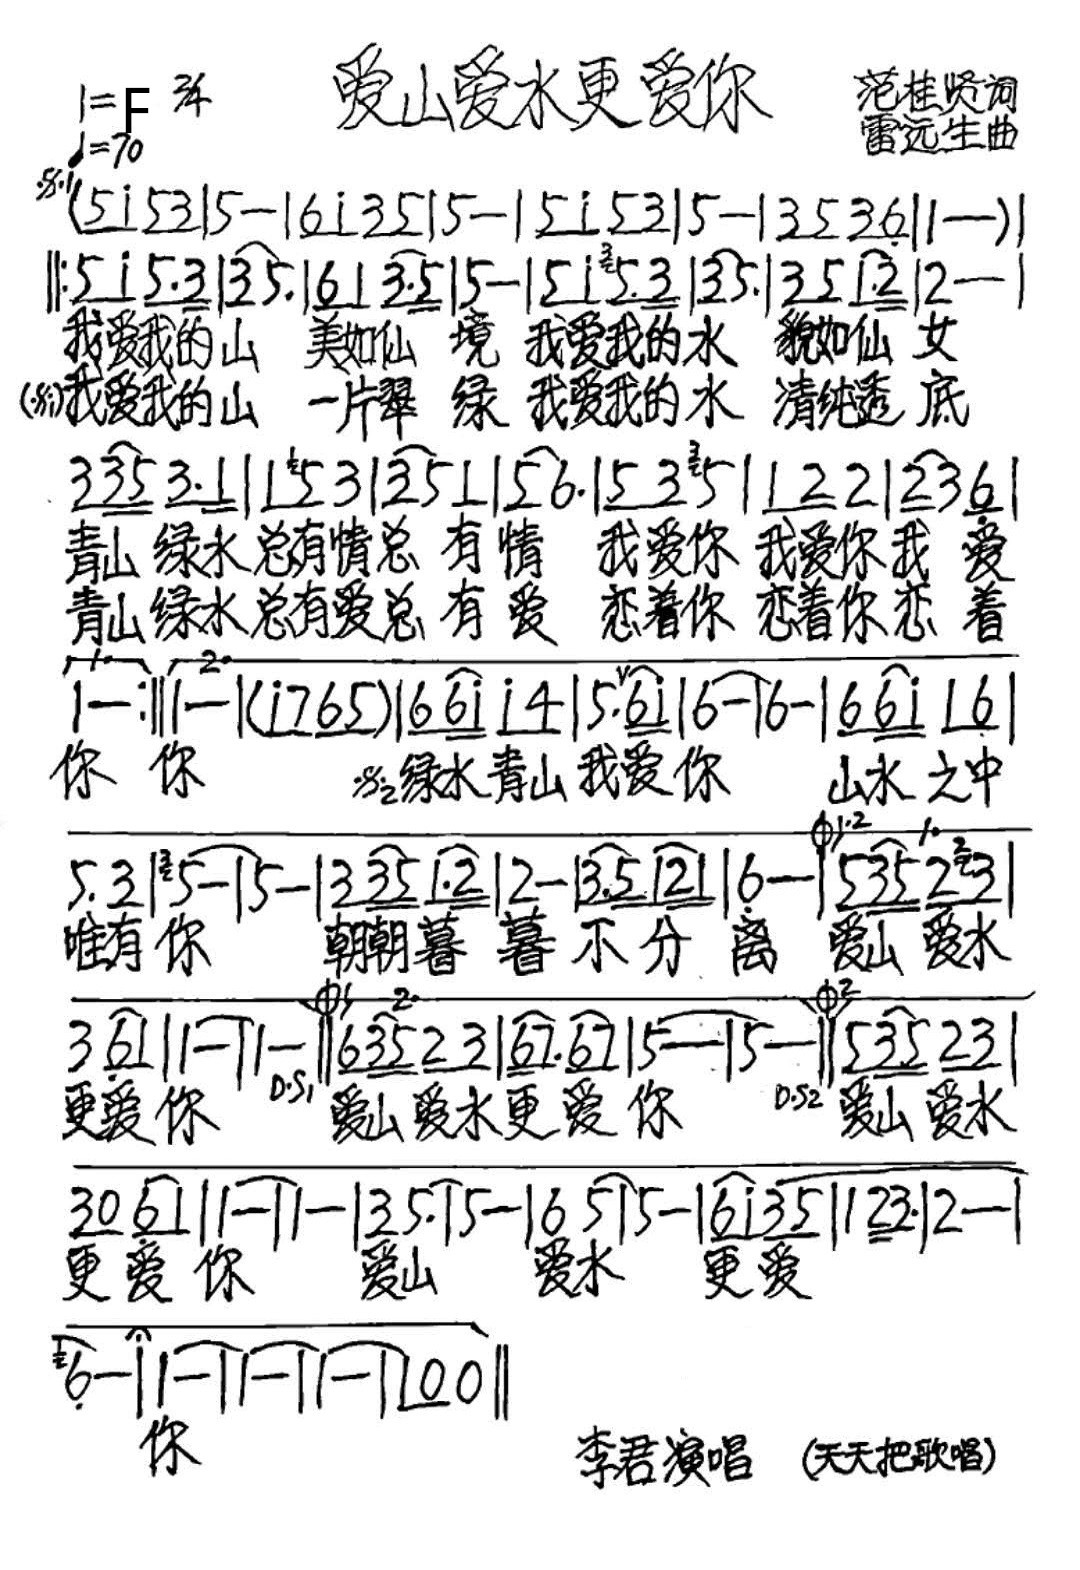 爱山爱水更爱你
1=F 2/4
♩=70
范桂贤词
雷远生曲
(5i53|5—|6i35|5—|5i53|5—|3536|1—)|
‖:5i5.3|35.|6135|5—|5i5.3|35.|351.2|2—|
我爱我的山 美如仙 境 我爱我的水 貌如仙 女
我爱我的山 一片翠 绿 我爱我的水 清纯透 底
3353.1|153|351|56.|535|122|236|
青山 绿水 总有情总 有 情 我爱你 我爱你我 爱
青山 绿水 总有爱总 有 爱 恋着你 恋着你恋 着
1. 2.
1—:‖1—|(i765)|66ii4|5.6i|6—|6—|66i16|
你 你 绿水青山 我爱 你 山水 之中
5.3|5—|5—|3351.2|2—|3.5121|6—|53523|
唯有 你 朝朝暮 暮 不 分 离 爱山 爱水
361|1—|1—‖63523|67.67|5—|5—‖53523|
D.S1 D.S2
更爱 你 爱山 爱水更 爱 你 爱山 爱水
3061|1—|1—|35.|5—|65|5—|6i35|123.|2—|
更 爱 你 爱山 爱水 更 爱
6—|1—|1—|1—|100‖
你
李君演唱 (天天把歌唱)